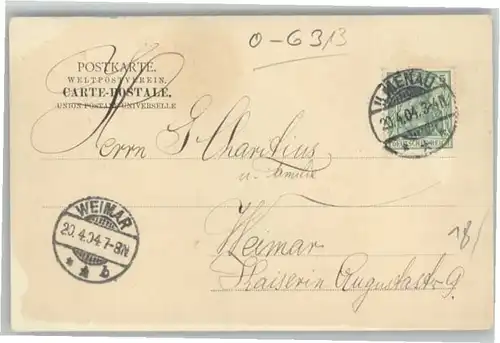 0-6313
POSTKARTE.
WELTPOSTVEREIN.
CARTE-POSTALE.
UNION POSTALE UNIVERSELLE
5
ILMENAU
20.4.04. 3-4N
Herrn G. Charitius
u. Familie
WEIMAR
20.4.04.7-8N
* * b
Weimar
Kaiserin Augustastr 9.
18/